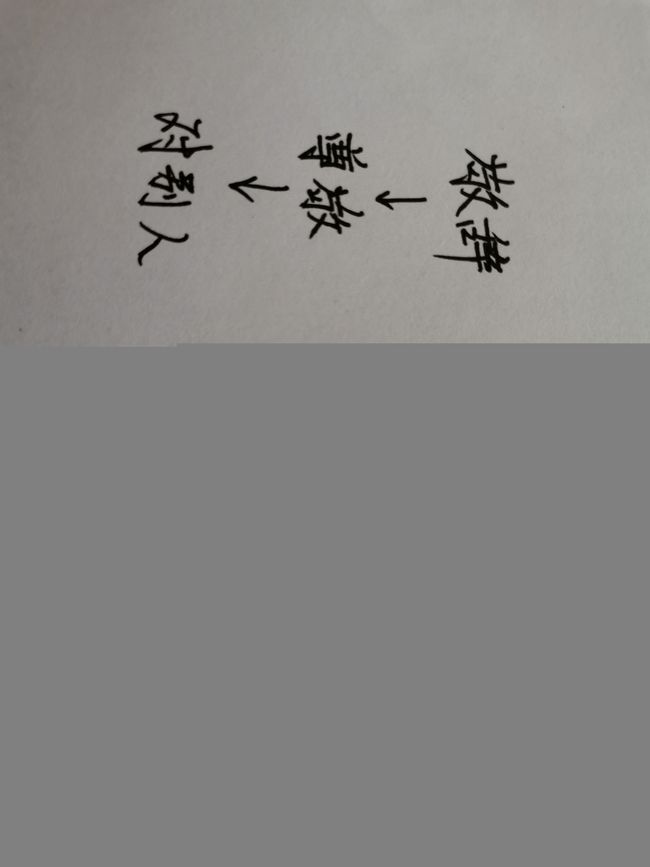 敬辞
↓
尊敬
↓
对别人